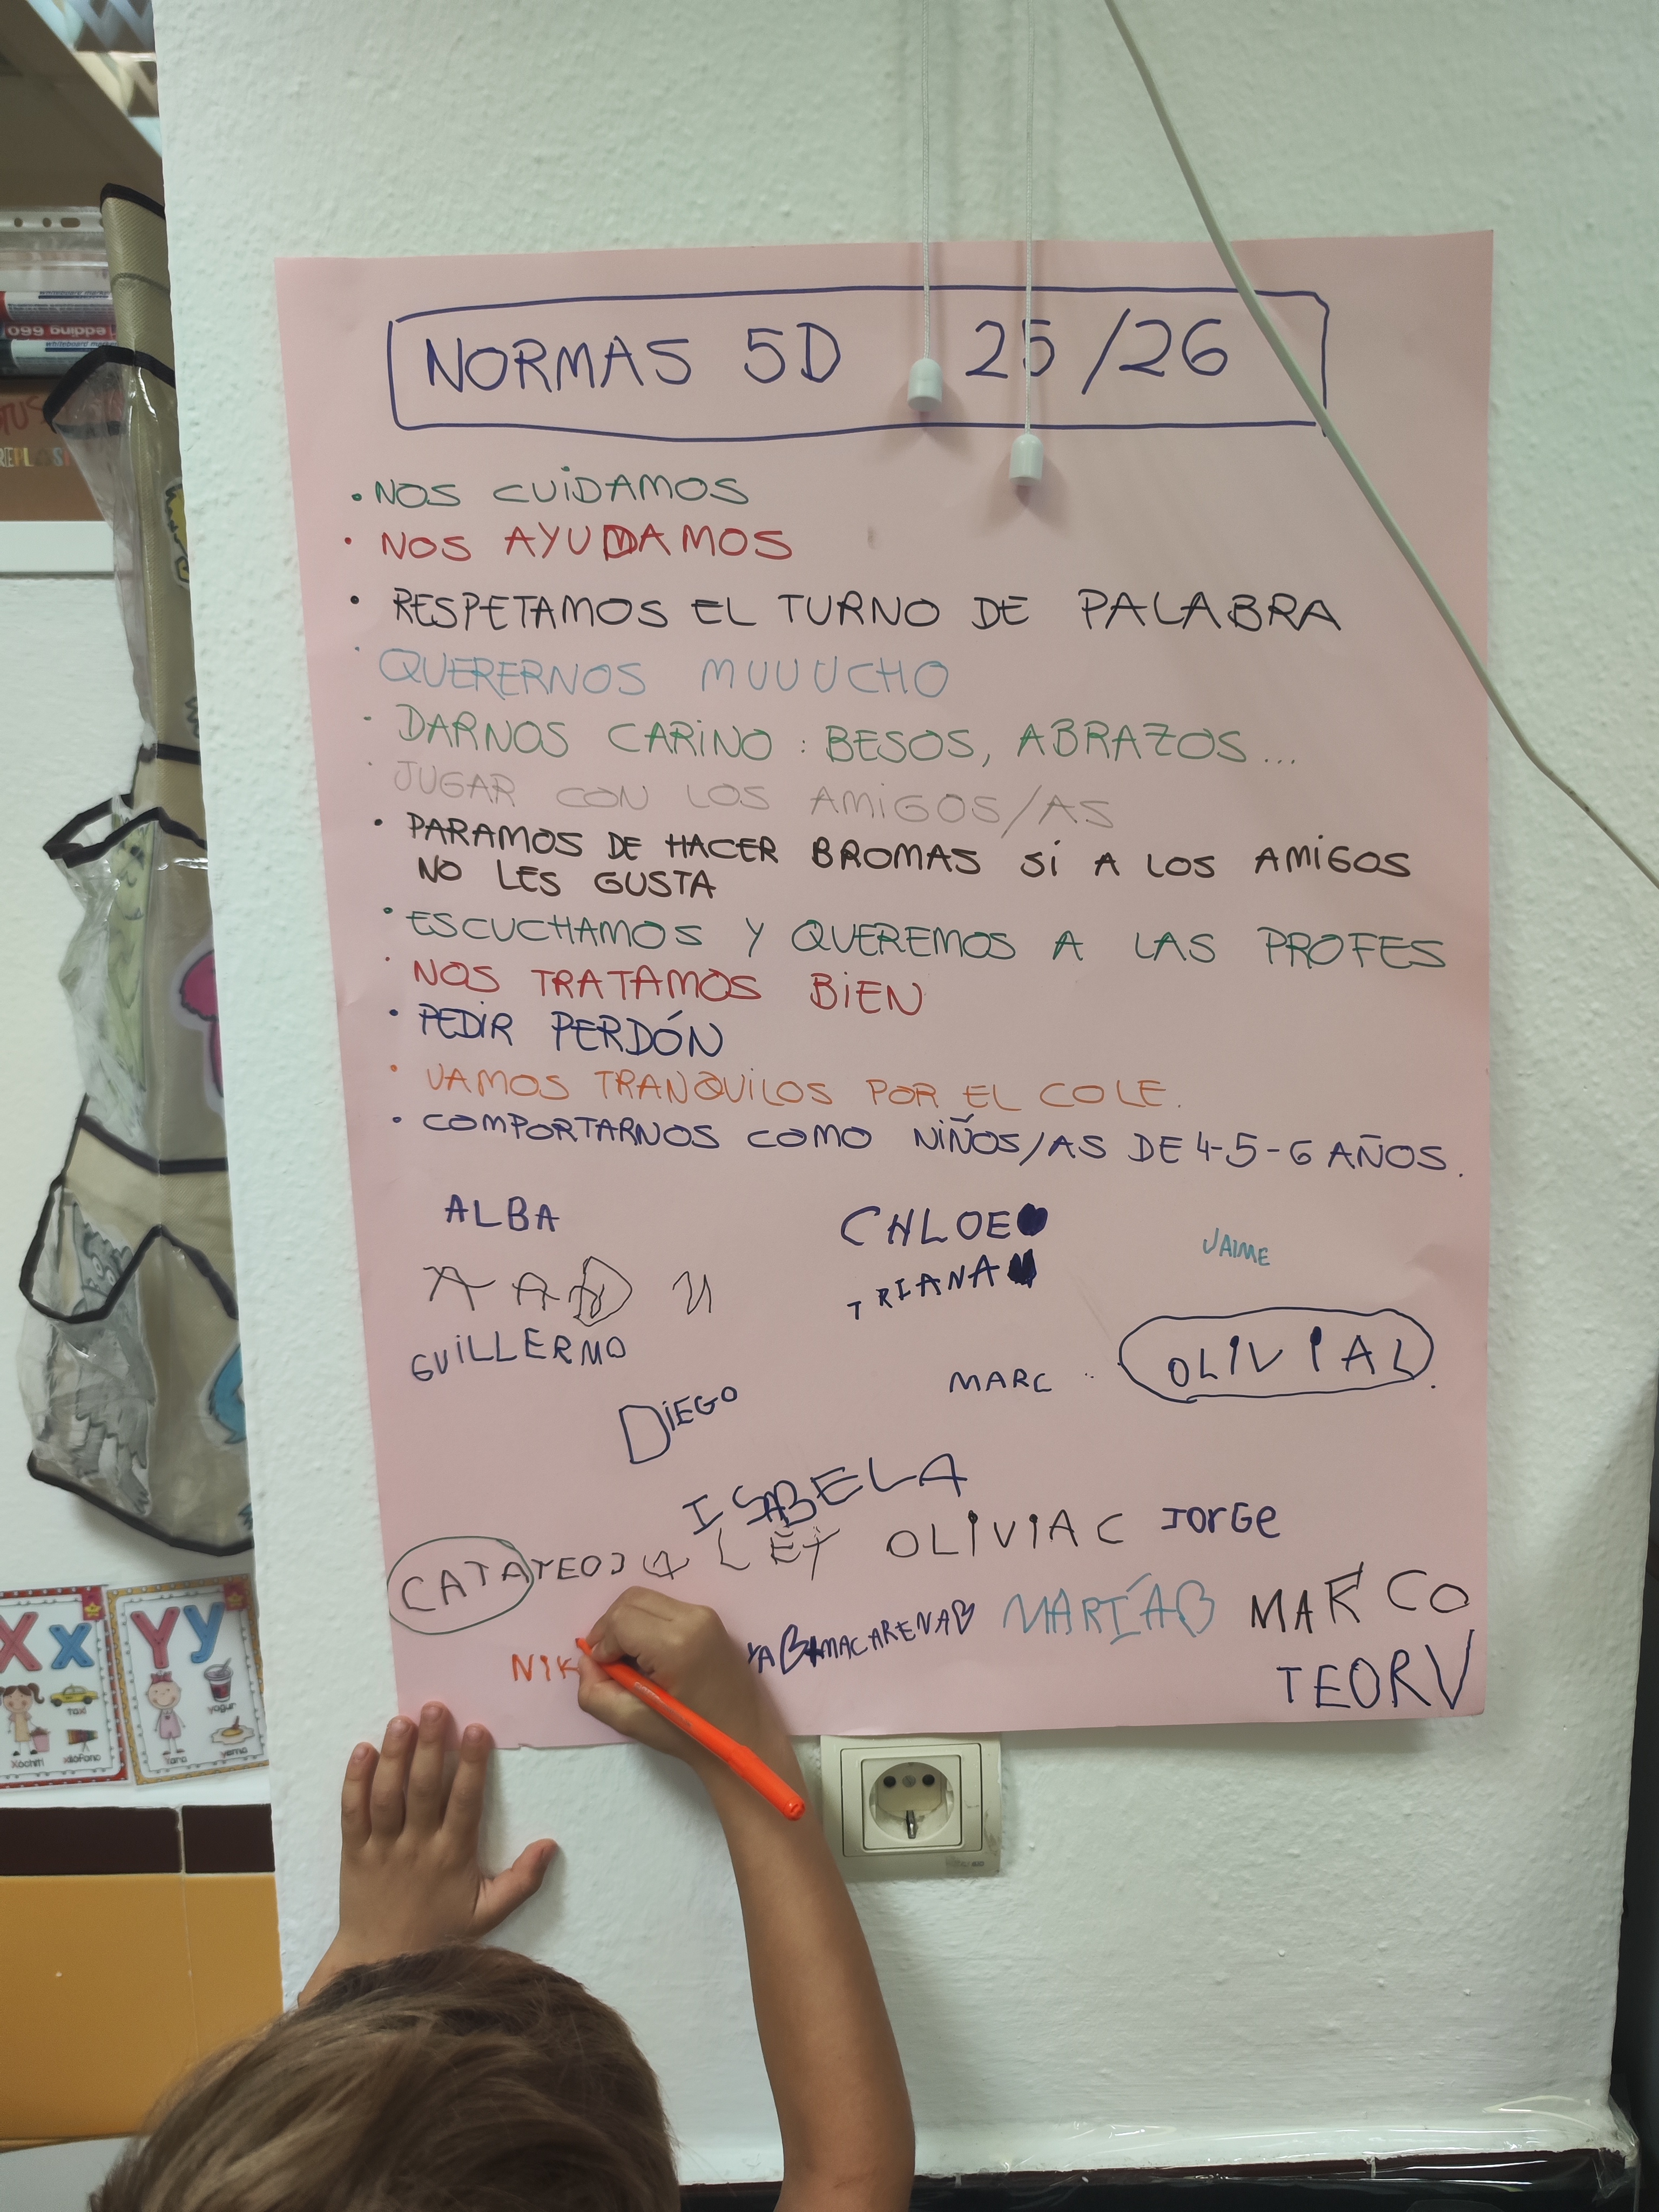 NORMAS 5D 25/26
. NOS CUIDAMOS
. NOS AYUDAMOS
. RESPETAMOS EL TURNO DE PALABRA
. QUERERNOS MUUUCHO
. DARNOS CARINO : BESOS, ABRAZOS...
. JUGAR CON LOS AMIGOS/AS
. PARAMOS DE HACER BROMAS SI A LOS AMIGOS
NO LES GUSTA
. ESCUCHAMOS Y QUEREMOS A LAS PROFES
. NOS TRATAMOS BIEN
. PEDIR PERDÓN
. VAMOS TRANQUILOS POR EL COLE.
. COMPORTARNOS COMO NIÑOS/AS DE 4-5-6 AÑOS.
ALBA
CHLOE
JAIME
TRIANA
GUILLERMO
OLIVIAL
MARC
DIEGO
ISABELA
OLIVIAC
JorGe
CATA
TEOJ
MARÍAB
MARCO
MACARENAB
NIK
TEORV
edding 660
whiteboard
Xx
taxi
Xóchitl
xilófono
Yy
yogur
Yara
yema